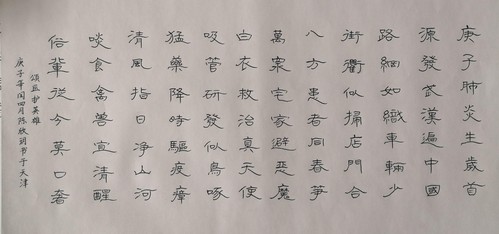 庚子肺炎生歲首
源發武漢遍中國
路網如織車輛少
街衢似掃店門合
八方患者同春
萬宅家避惡魔
白衣救治真天使
吸管研發似鳥啄
猛藥降時驅疫瘴
清風指日净山河
啖食禽獸宜清醒
俗輩從今莫口奢
頌医护英雄
庚子年闰四月陈欣书于天津